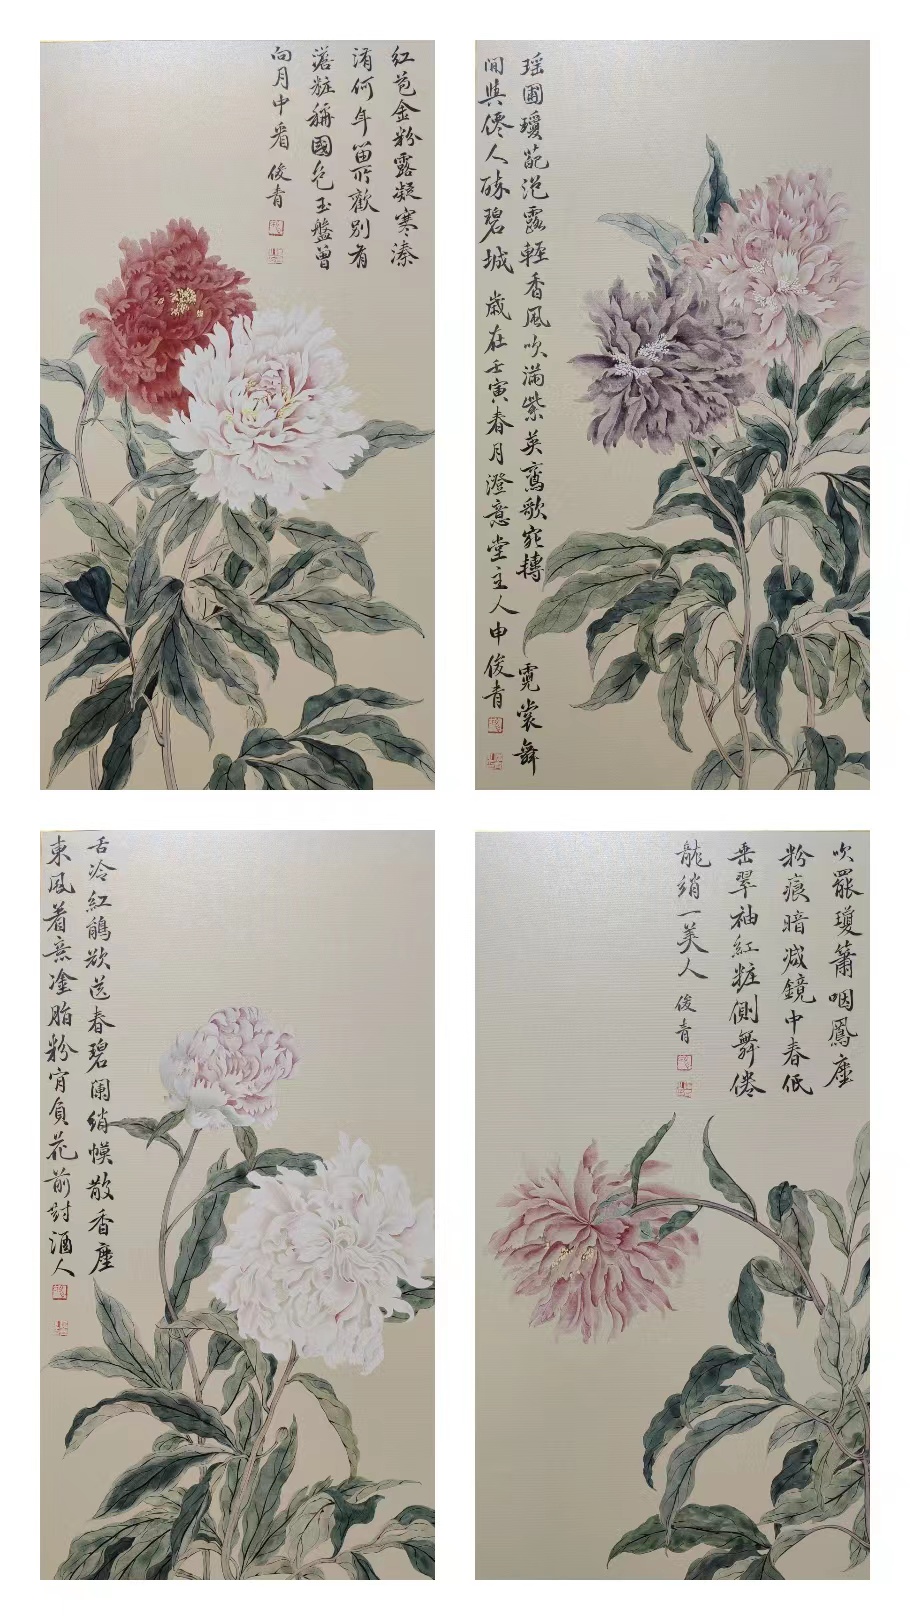 红苞金粉露凝寒溱
洧何年留所歡別有
澹粧稱國色玉盤曾
向月中看 俊青
瑶圃瓊葩浥露輕香風吹滿紫英鸞歌宛轉霓裳舞
閒與僊人醉碧城 歲在壬寅春月澄意堂主人申俊青
舌冷紅鵑欲送春碧闌綃幙散香塵
東風着意塗脂粉肯負花前對酒人
吹罷瓊簫咽鳳塵
粉痕暗减鏡中春低
垂翠袖紅粧側舞倦
龍綃一美人 俊青